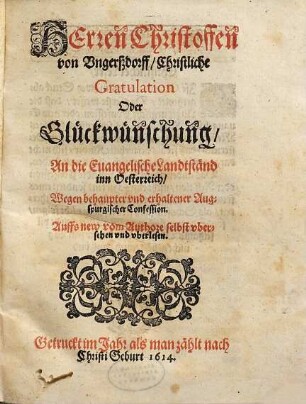 HErren Christoffen
von Vngerßdorff/ Christliche
Gratulation
Oder
Glückwünschung/
An die Euangelische Landtständ
inn Oesterreich/
Wegen behaupter vnd erhaltener Aug-
spurgischer Confession.
Auffs new vom Authore selbst vber-
sehen vnd vberlesen.
Getruckt im Jahr als man zählt nach
Christi Geburt 1614.